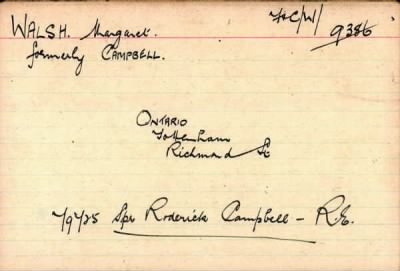 WALSH. Margaret.
9386
formerly CAMPBELL.
ONTARIO
Tottenham
Richmond St
Spr Roderick Campbell – R.E.